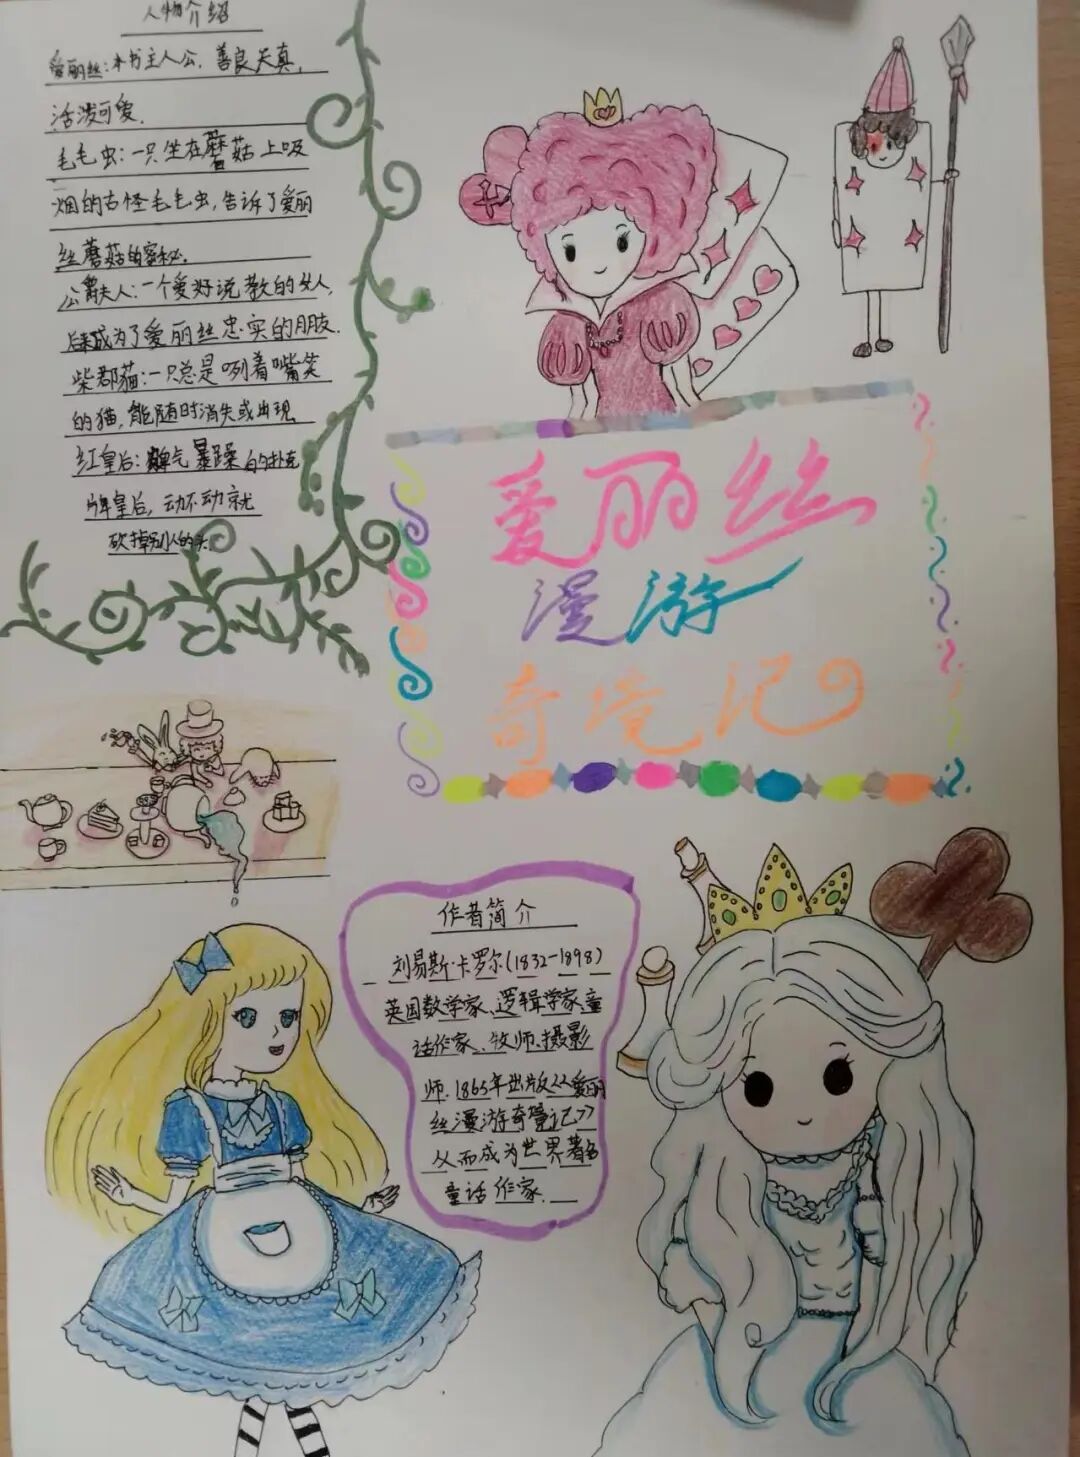 人物介绍
爱丽丝:本书主人公,善良天真,
活泼可爱.
毛毛虫:一只坐在蘑菇上吸
烟的古怪毛毛虫,告诉了爱丽
丝蘑菇的密秘.
公爵夫人:一个爱好说教的女人,
后来成为了爱丽丝忠实的朋友.
柴郡猫:一只总是咧着嘴笑
的猫,能随时消失或出现
红皇后:脾气暴躁的扑克
牌皇后,动不动就
砍掉别人的头
爱丽丝
漫游
奇境记
作者简介
刘易斯·卡罗尔(1832-1898)
英国数学家、逻辑学家、童
话作家、牧师、摄影
师.1865年出版<<爱丽
丝漫游奇境记>>
从而成为世界著名
童话作家.